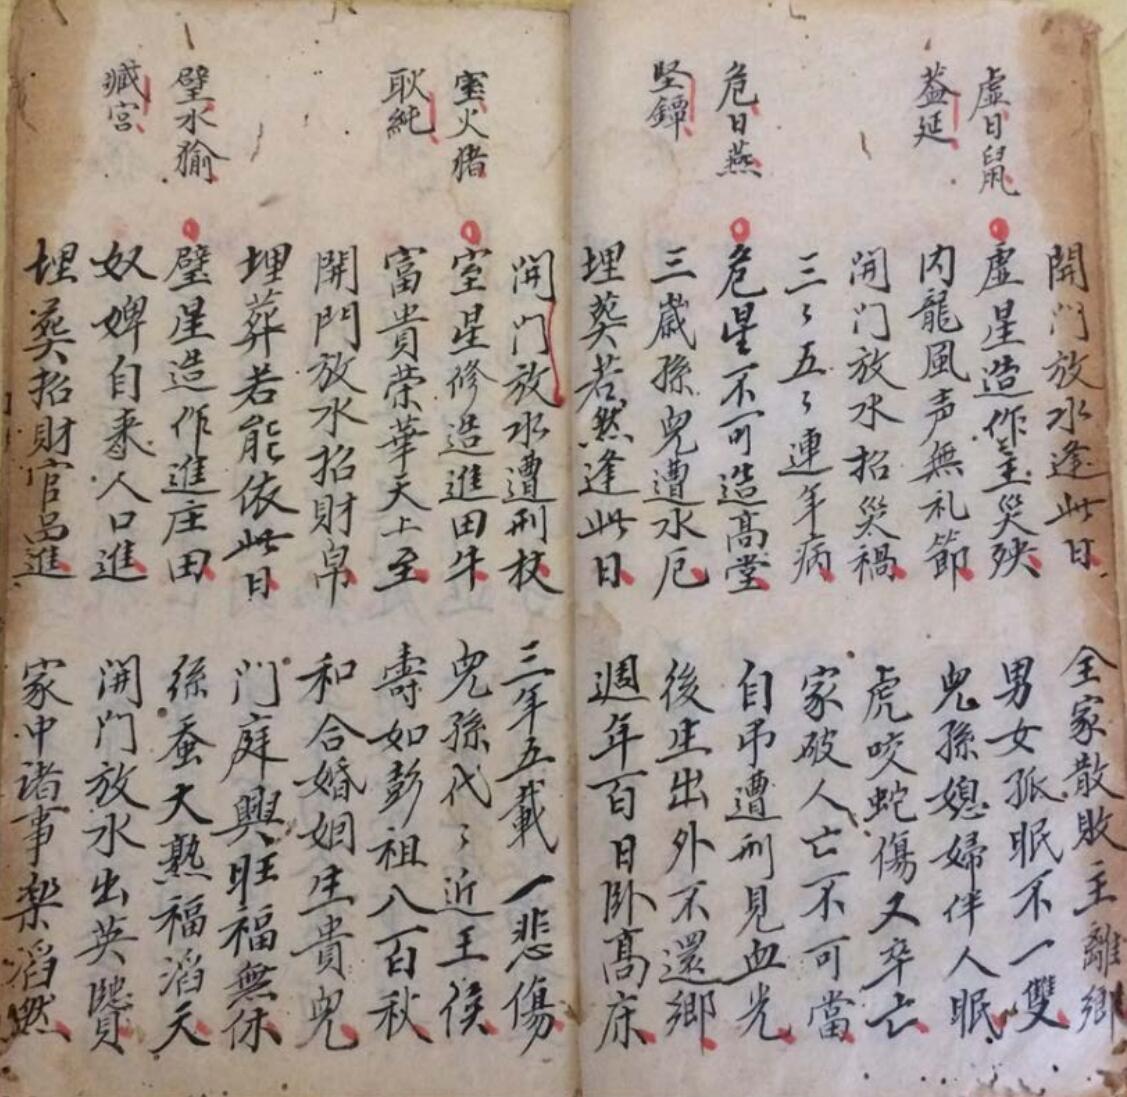 開門放水逢此日
全家散敗主離鄉
虛日鼠
虛星造作主災殃
男女孤眠不一雙
蓋延
内龍風声無礼節
兒孫媳婦伴人眠
開門放水招災禍
虎咬蛇傷又卒亡
三々五々連年病
家破人亡不可當
危日燕
危星不可造高堂
自吊遭刑見血光
堅鐔
三歲孫兒遭水厄
後生出外不還鄉
埋葬若然逢此日
週年百日卧高床
開門放水遭刑杖
三年五載一悲傷
室火猪
室星修造進田牛
兒孫代々近王侯
耿純
富貴荣華天上至
壽如彭祖八百秋
開門放水招財帛
和合婚姻生貴兒
埋葬若能依此日
門庭興旺福無休
壁水㺄
璧星造作進庄田
絲蚕大熟福滔天
臧宮
奴婢自来人口進
開門放水出英賢
埋葬招財官品進
家中諸事樂滔然